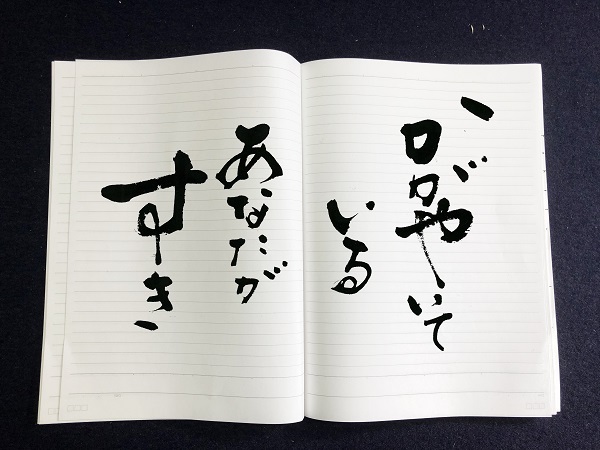 かがやいて
いる
あなたが
すき